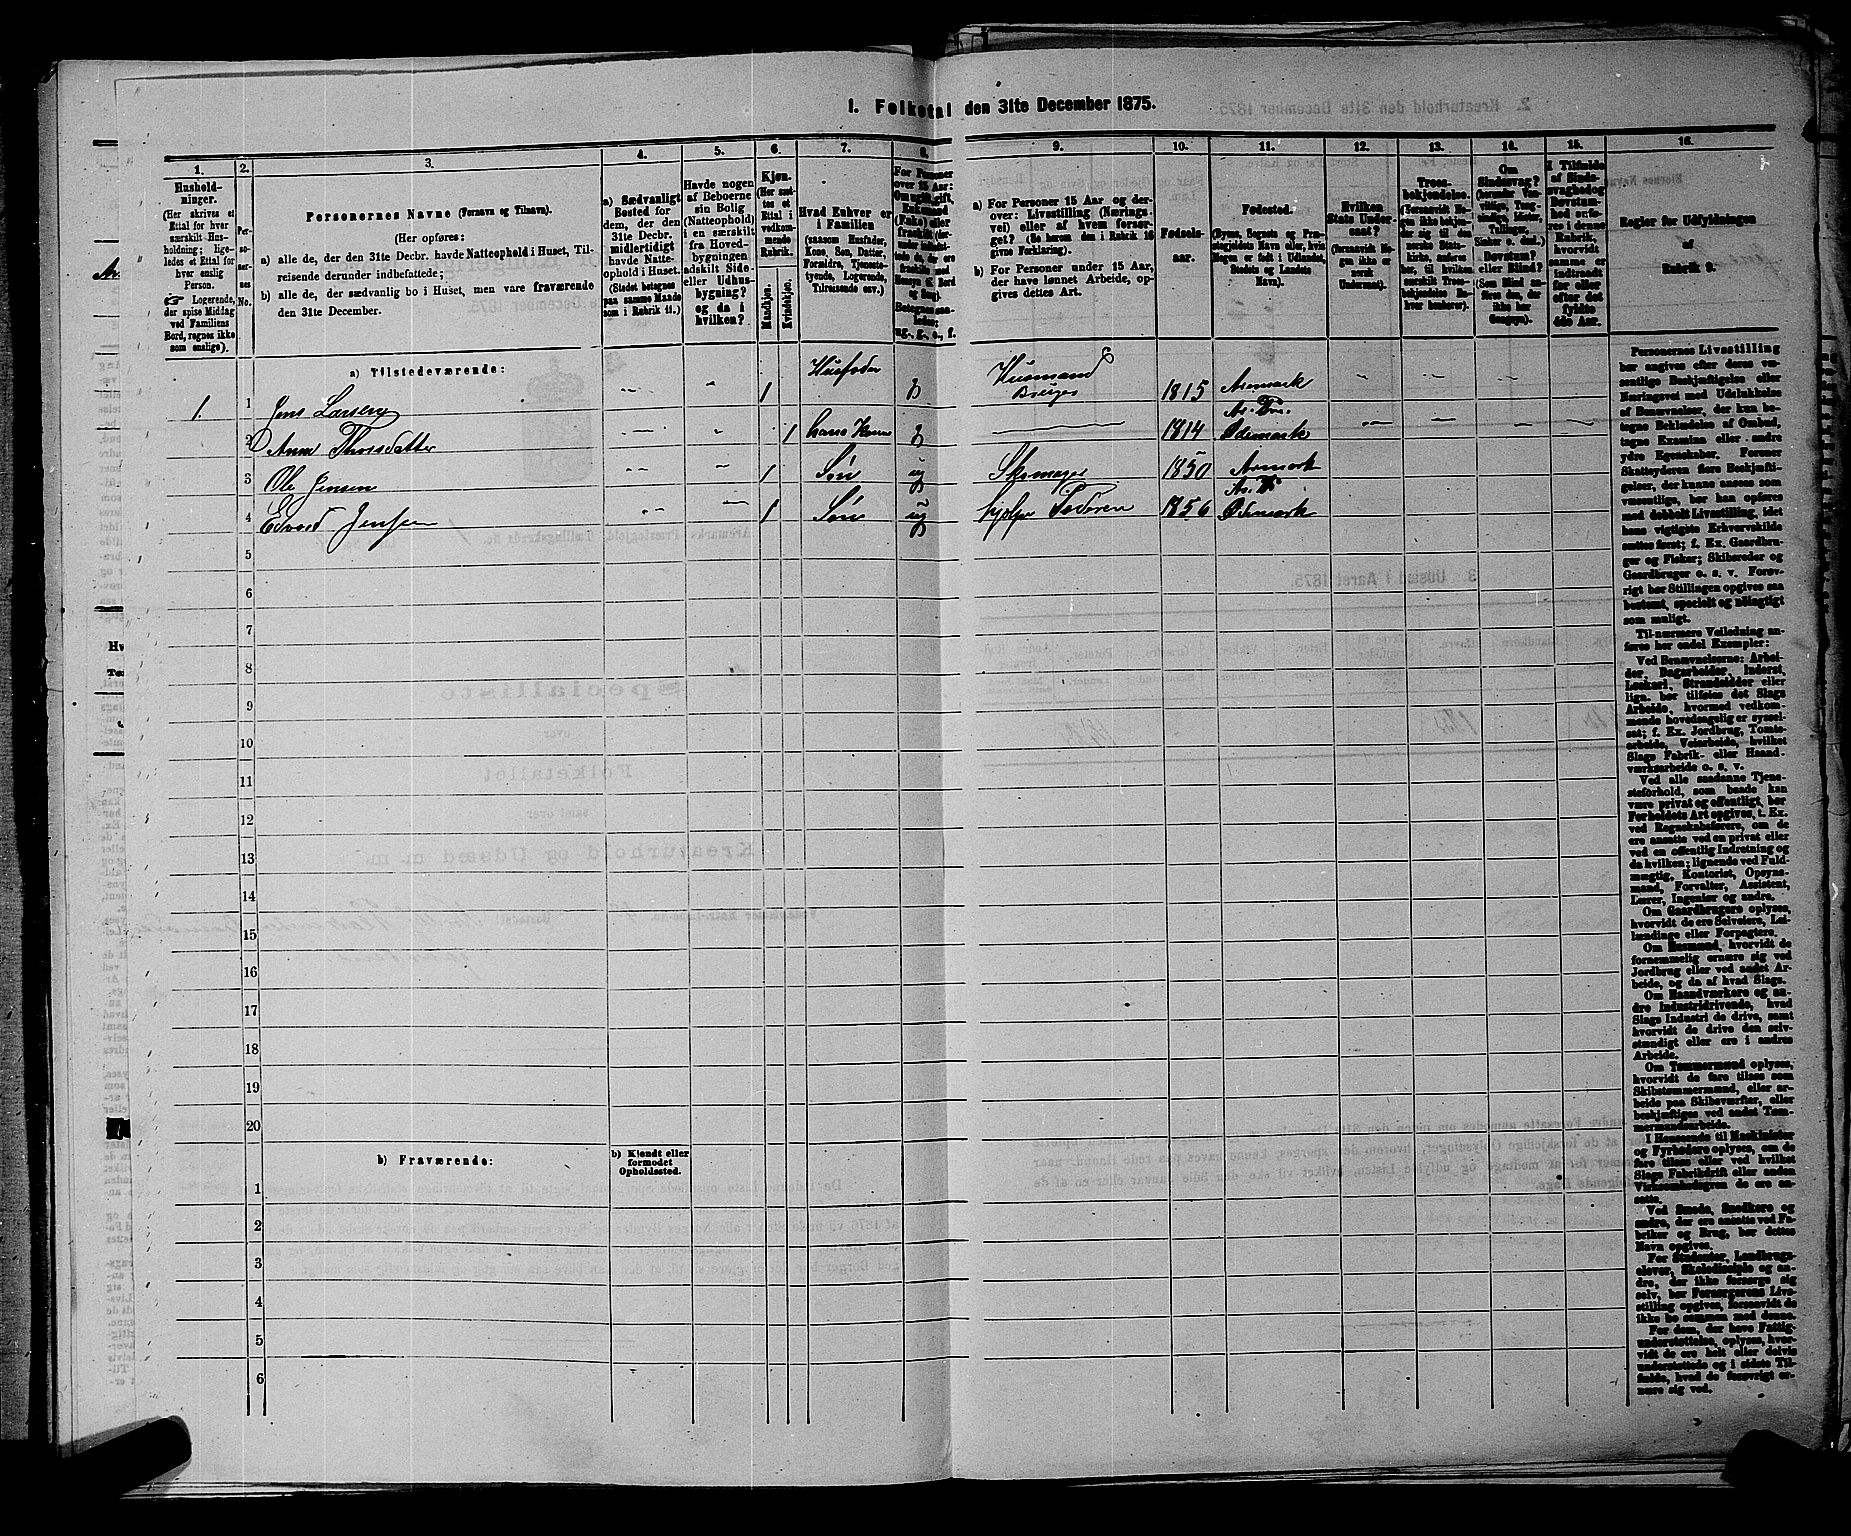 1. Folketal den 31te December 1875.
1. 2. 3. 4. 5. 6. 7. 8. 9. 10. 11. 12. 13. 14. 15. 16.
Hushold-
ninger.
(Her skrives et
Ettal for hver
særskilt Hus-
holdning; lige-
ledes et Ettal for
hver enslig
Person.
☞ Logerende,
der spise Middag
ved Familiens
Bord, regnes ikke
som enslige).
Per-
so-
ner-
nes
No.
Personernes Navne (Fornavn og Tilnavn).
(Her opføres:
a) alle de, der den 31te Decbr. havde Natteophold i Huset, Til-
reisende derunder indbefattede;
b) alle de, der sædvanlig bo i Huset, men vare fraværende
den 31te December.
a) Sædvanligt
Bosted for
dem, der den
31te Decbr.
midlertidigt
havde Natte-
ophold i Huset.
(Stedet betegnes
paa samme Maade
som i Rubrik 11.)
Havde nogen
af Beboerne
sin Bolig
(Natteophold)
i en særskilt
fra Hoved-
bygningen
adskilt Side-
eller Udhus-
bygning?
og da i
hvilken?
Kjøn.
(Her sæt-
tes et
Ettal i
vedkom-
mende
Rubrik.
Mandkjøn.
Kvindekjøn.
Hvad Enhver er
i Familien
(saasom Husfader,
Kone, Søn, Datter,
Forældre, Tjeneste-
tyende, Logerende,
Tilreisende osv.)
For Personer
over 15 Aar:
ug., g., e., f.
a) For Personer 15 Aar og der-
over: Livsstilling (Nærings-
vei) eller af hvem forsør-
get? (Se herom den i Rubrik 16
givne Forklaring).
b) For Personer under 15 Aar,
der have lønnet Arbeide, op-
gives dettes Art.
Fødsels-
aar.
Fødested.
(Byens, Sognets og Præ-
stegjeldets Navn eller, hvis
Nogen er født i Udlandet,
Stedets og Landets
Navn).
Hvilken
Stats Under-
saat?
(Forsaavidt No-
gen ikke er
norsk
Undersaat).
Troes-
bekjendelse.
(Forsaavidt No-
gen ikke bekjen-
der sig til den
norske Stats-
kirke, anføres
her, til hvilken
Troes-
bekjendelse En-
hver henhører).
Om
Sindssvag?
Døvstum?
eller Blind?
I Tilfælde
af Sinds-
svaghed og
Døvstum-
hed anfø-
res i denne
Rubrik,
hvorvidt
samme er
indtraadt
før eller
efter det
fyldte
4de Aar.
Regler for Udfyldningen
af
Rubrik 9.
a) Tilstedeværende:
1. 1 Jens Larsen — — 1 Husfader g Husmand Bruger 1815 Aremark — — — —
2 Ann Thorsdatter — — 1 hans Kone g — 1814 Ødemark — — — —
3 Ole Jensen — — 1 Søn ug Skomager 1850 Aremark
4 Edvard Jensen — — 1 Søn ug hjelper Faderen 1856 Ødemark
5
6
7
8
9
10
11
12
13
14
15
16
17
18
19
20
b) Fraværende:
b) Kjendt eller
formodet
Opholdssted.
1
2
3
4
5
6
Personernes Livsstilling
bør angives efter deres væ-
sentlige Beskjæftigelse eller
Næringsvei med Udelukkelse
af Benævnelser, der kun be-
tegne Beklædelse af Ombud,
tagne Examina eller andre
ydre Egenskaber. Forener
Skatteyderen flere Beskjæfti-
gelser, der kunne ansees som
væsentlige, bør han opføres
med dobbelt Livsstilling, idet
hans vigtigste Erhvervskilde
sættes først; f. Ex. Gaardbru-
ger og Fisker; Skibsreder og
Gaardbruger o. s. v. Forøv-
rigt bør Stillingen opgives saa
bestemt, specielt og nøiagtigt
som muligt.
Til nærmere Veiledning an-
føres her endel Exempler:
Ved Benævnelserne: Arbei-
der, Dagarbeider, Inderst,
Løskarl, Strandsidder eller
lign. bør tilføies det Slags
Arbeide, hvormed vedkom-
mende hovedsagelig er syssel-
sat; f. Ex. Jordbrug, Tomte-
arbeide, Veiarbeide, hvilket
Slags Fabrik- eller Haand-
værksarbeide o. s. v.
Ved alle saadanne Tjene-
steforhold, som baade kan
være privat og offentligt, bør
Forholdets Art opgives, f. Ex.
ved Regnskabsførere, om de
ere ansatte ved en privat eller
ved en offentlig Indretning og
da hvilken; lignende ved Fuld-
mægtig, Kontorist, Opsyns-
mand, Forvalter, Assistent,
Lærer, Ingeniør og andre.
Om Gaardbrugere oplyses,
hvorvidt de ere Selveiere, Lei-
lændinge eller Forpagtere.
Om Husmænd, hvorvidt de
fornemmelig ernære sig ved
Jordbrug eller ved andet Ar-
beide, og da af hvad Slags.
Om Haandværkere og an-
dre Industridrivende, hvad
Slags Industri de drive, samt
hvorvidt de drive den selv-
stændigt eller ere i andres
Arbeide.
Om Tømmermænd oplyses,
hvorvidt de fare tilsøs som
Skibstømmermænd, eller ar-
beide paa Skibsværfter, eller
beskjæftiges ved andet Tøm-
mermandsarbeide.
I Henseende til Maskinister
og Fyrbødere oplyses, om de
fare tilsøs eller ved hvilket
Slags Fabrikdrift eller anden
Virksomhedsgren de ere an-
satte.
Ved Smede, Snedkere og
andre, der ere ansatte ved Fa-
briker og Brug, bør dettes
Navn opgives.
For Studenter, Landbrugs-
elever, Skoledisciple og an-
dre, der ikke forsørge sig
selv, bør Forsørgerens Livs-
stilling opgives, forsaavidt de
ikke bo sammen med denne.
For dem, der have Fattig-
understøttelse, oplyses, hvor-
vidt de ere helt eller delvis
understøttede og i sidste Til-
fælde, hvad de forøvrigt er-
nære sig ved.